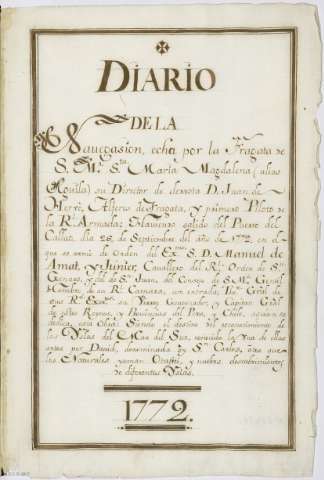 DIARIO
DE LA
Navegasion, echa por la Fragata de
S. M. Sta. María Magdalena (alias
Aguila) su Director de derrota D. Juan de
Hervé, Alferes de Fragata, y primero Piloto de
la Rl. Armada: Haviendo salido del Puerto del
Callao, dia 26, de Septiembre del año de 1772, en el
que se asina de Orden del Ex. S. D. Manuel de
Amat, y Junier, Cavallero del Rl. Orden de Sn
Genaro, y del de Sn. Juan, del Consejo de S. M. Gentil
Hombre de su Rl. Camara, con entrada, Ten. Gral. de
sus Rs. Exos. su Virrey Governador, y Capitan Gral.
de estos Reynos, y Provincias del Peru, y Chile,
dedica, esta Obra: Siendo el destino del reconocimiento de
las Yslas del Mar del Sur, una de ellas
antes por David, denominada Sn. Carlos, otra que
los Naturales llaman Otaeite, y nuebos descubrimientos
de diferentes Yslas.
1772.